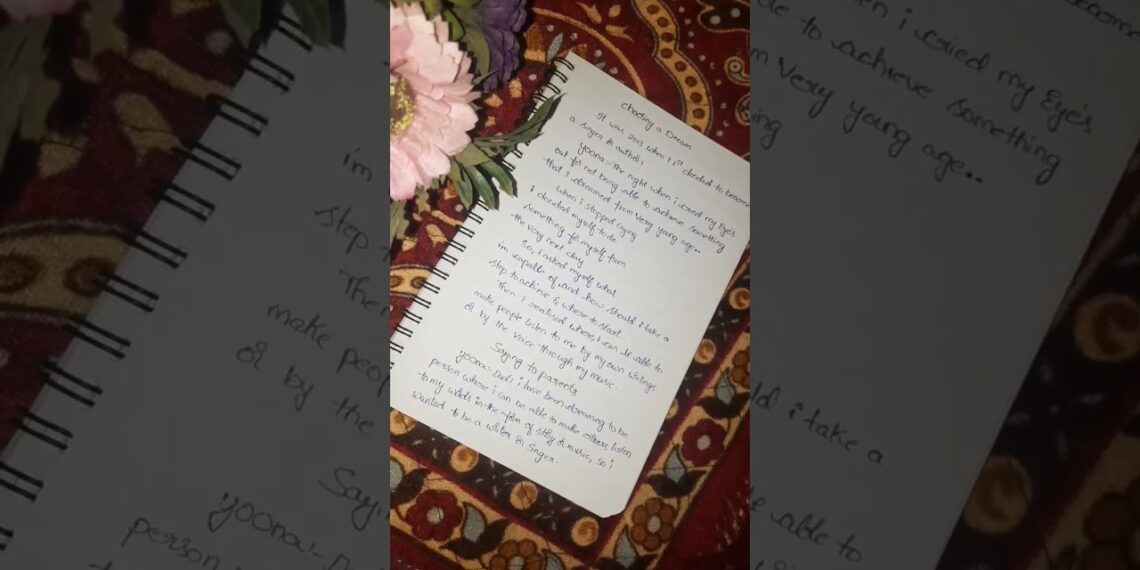 Chasing a Dream
It was 2013 when i 1st decided to become
a singer or author!
yoona:- The night when i cried my Eye's
out for not being able to achieve something
that i dreamed from very young age..
when i stopped crying
i decided myself to do
something for myself from
the very next day
So, i asked myself what
im capable of and how should i take a
step to achieve & where to start..
Then i realised where, i can be able to
make people listen to me by my own writings
or by the voice through my music.
Saying to parents
yoona:- Dad! i have been dreaming to be
person where i can be able to make others listen
to my words in the form of story or music, so i
wanted to be a writer or singer.